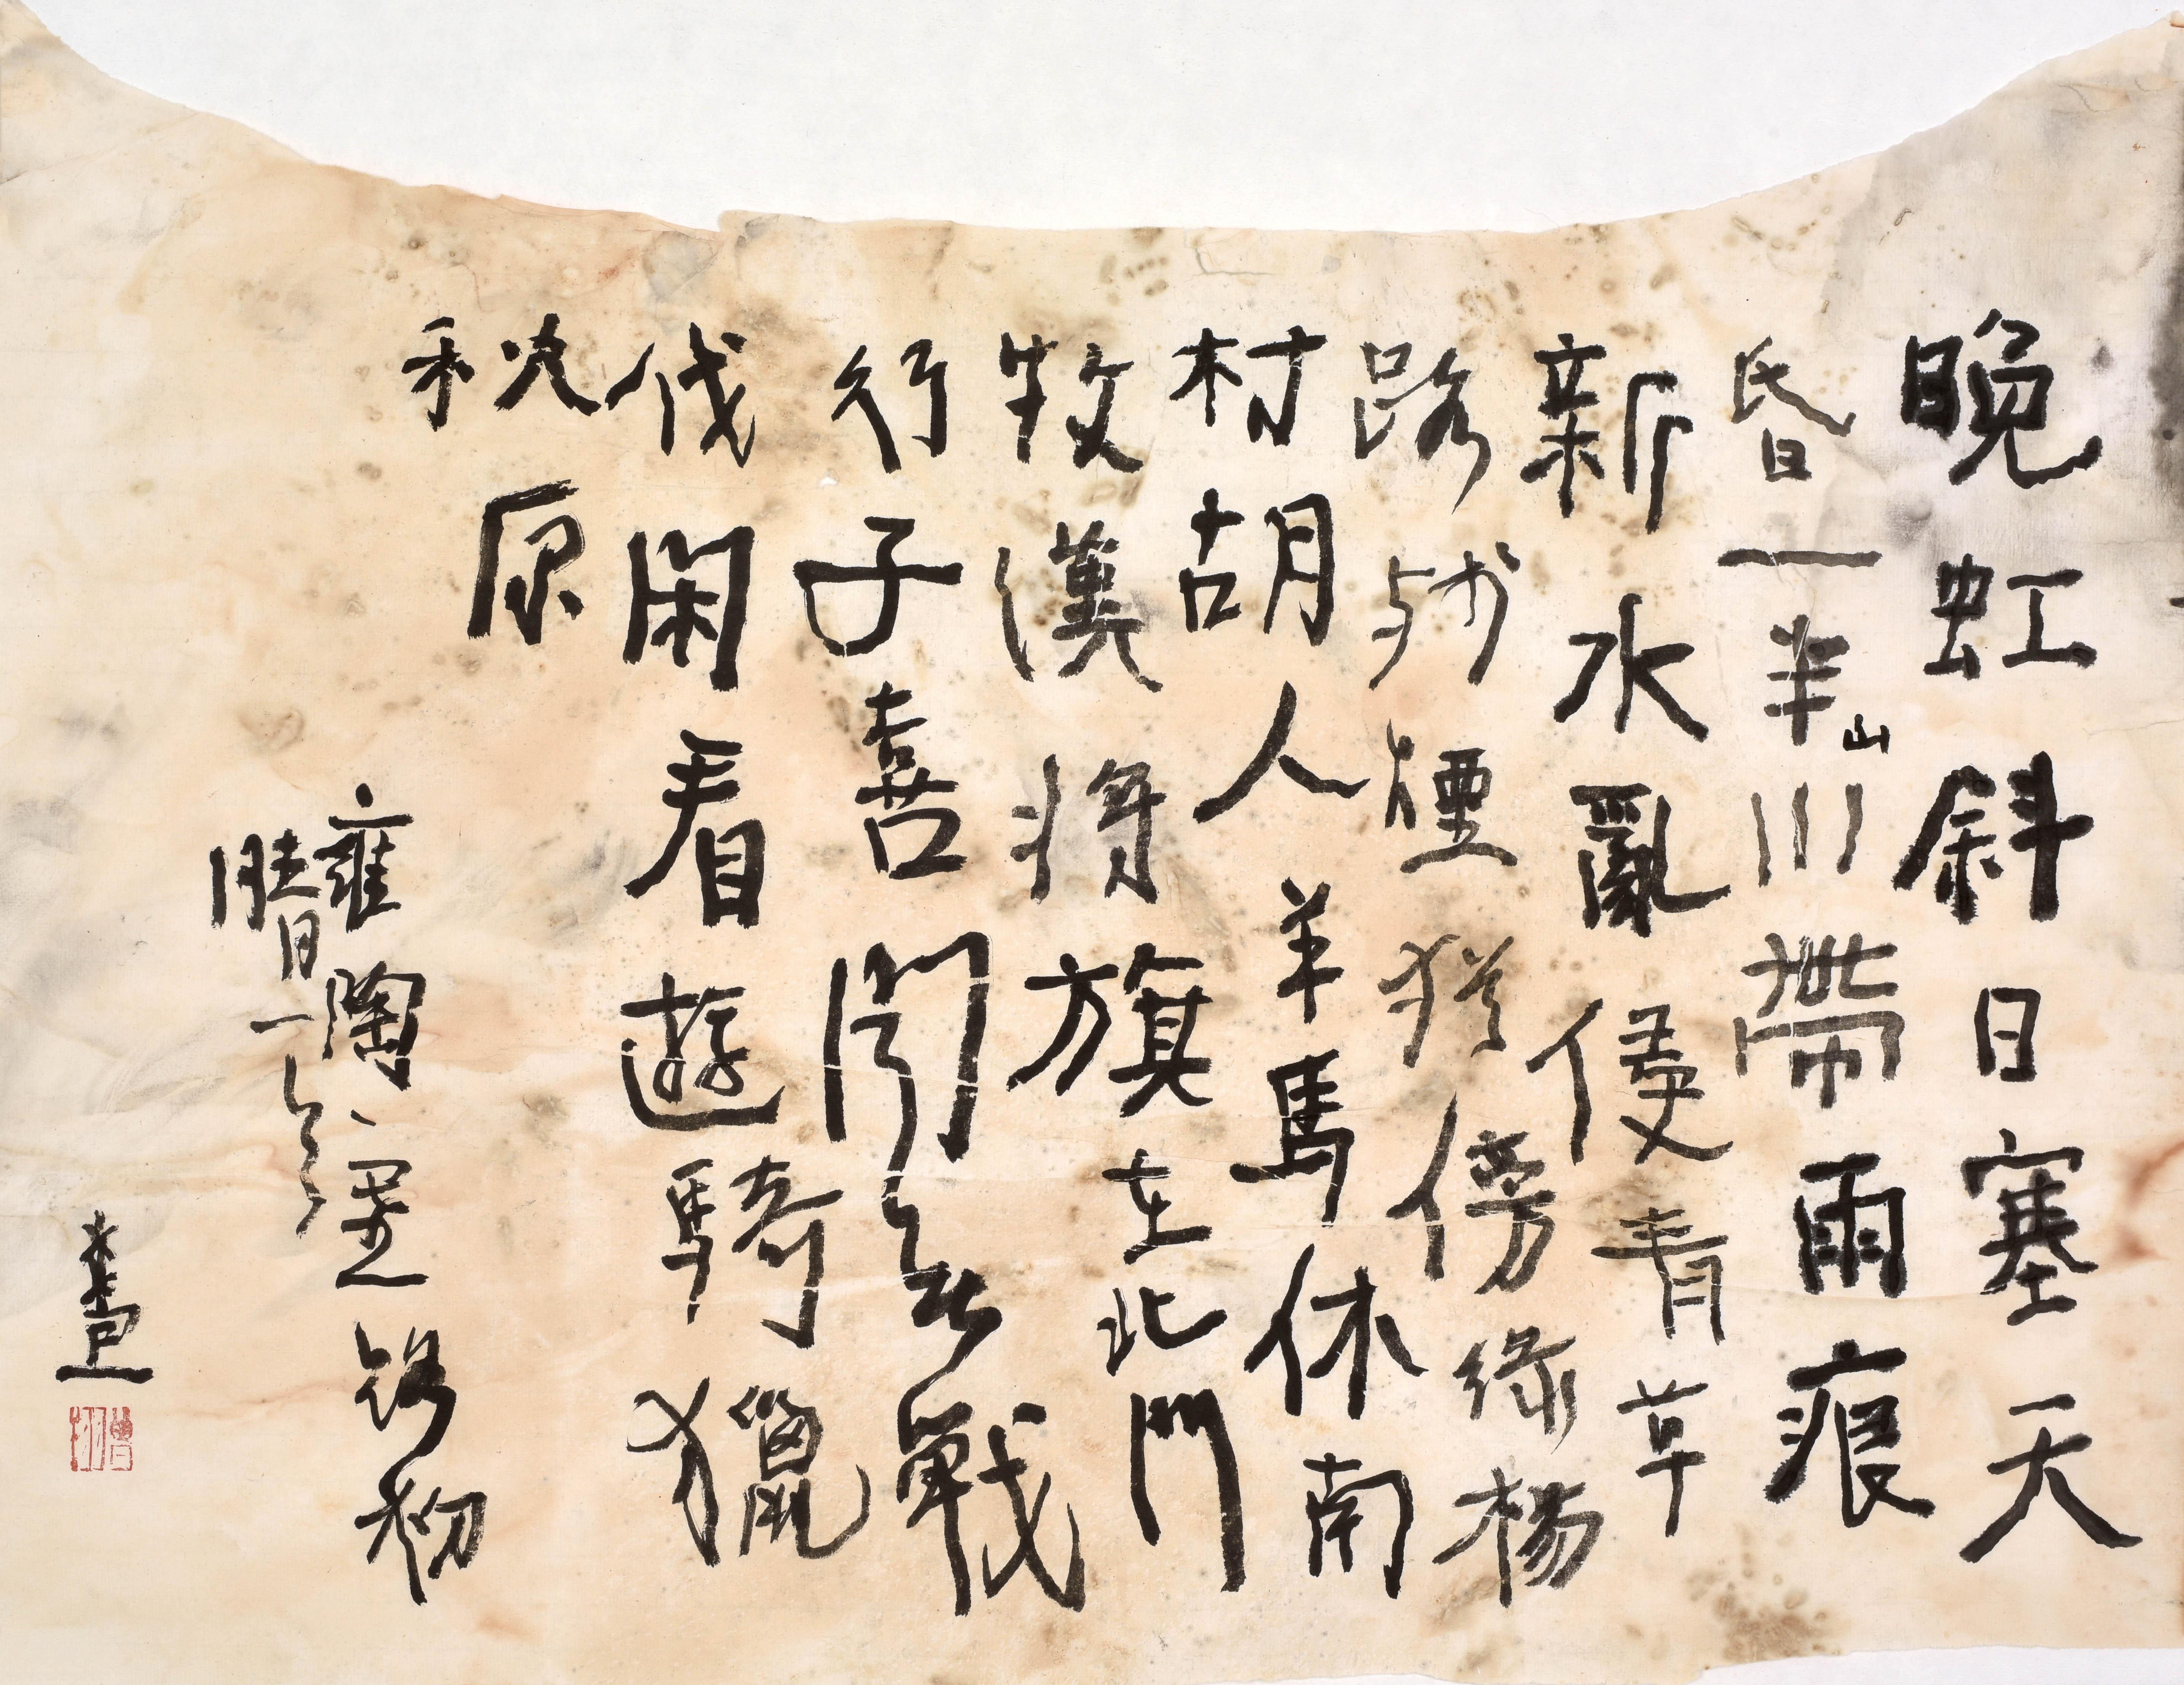 晚虹斜日塞天
昏一半山川帶雨痕
新水亂侵青草
路殘煙猶傍綠楊
村胡人羊馬休南
牧漢將旗在北門
行子喜聞無戰
伐閑看遊騎獵
秋原
雍陶塞路初
晴一首
曾翔